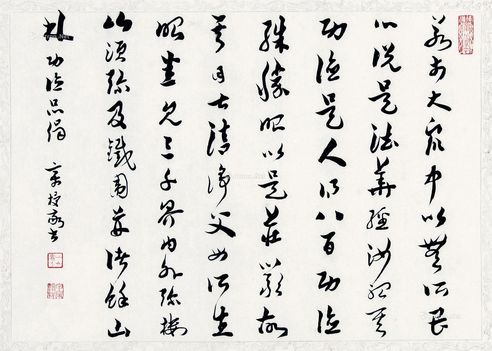 若於大眾中以無所畏
心說是法華經汝聽其
功德是人得八百功德
殊勝眼以是莊嚴故
其目甚清淨父母所生
眼悉見三千界內外彌樓
山須彌及鐵圍並諸餘山
林 功德品偈